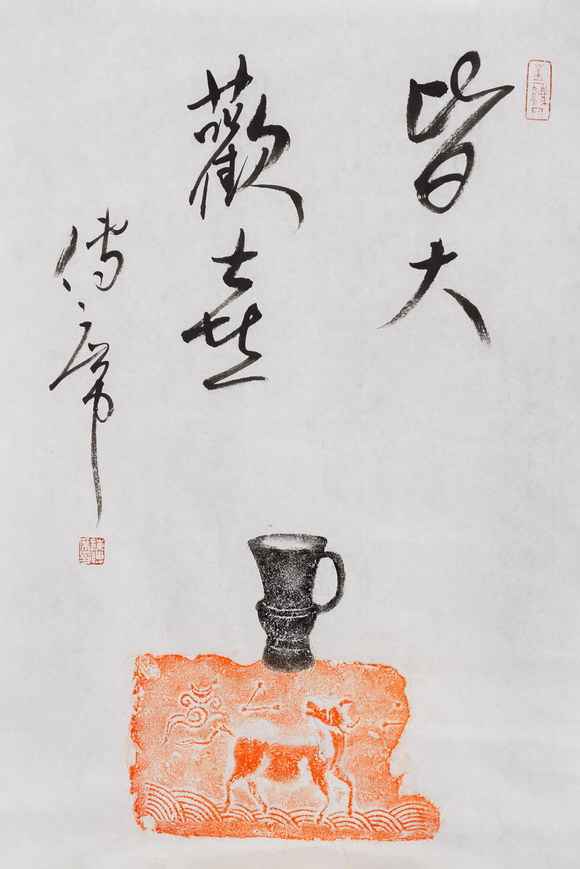 皆大
歡喜
傅·席